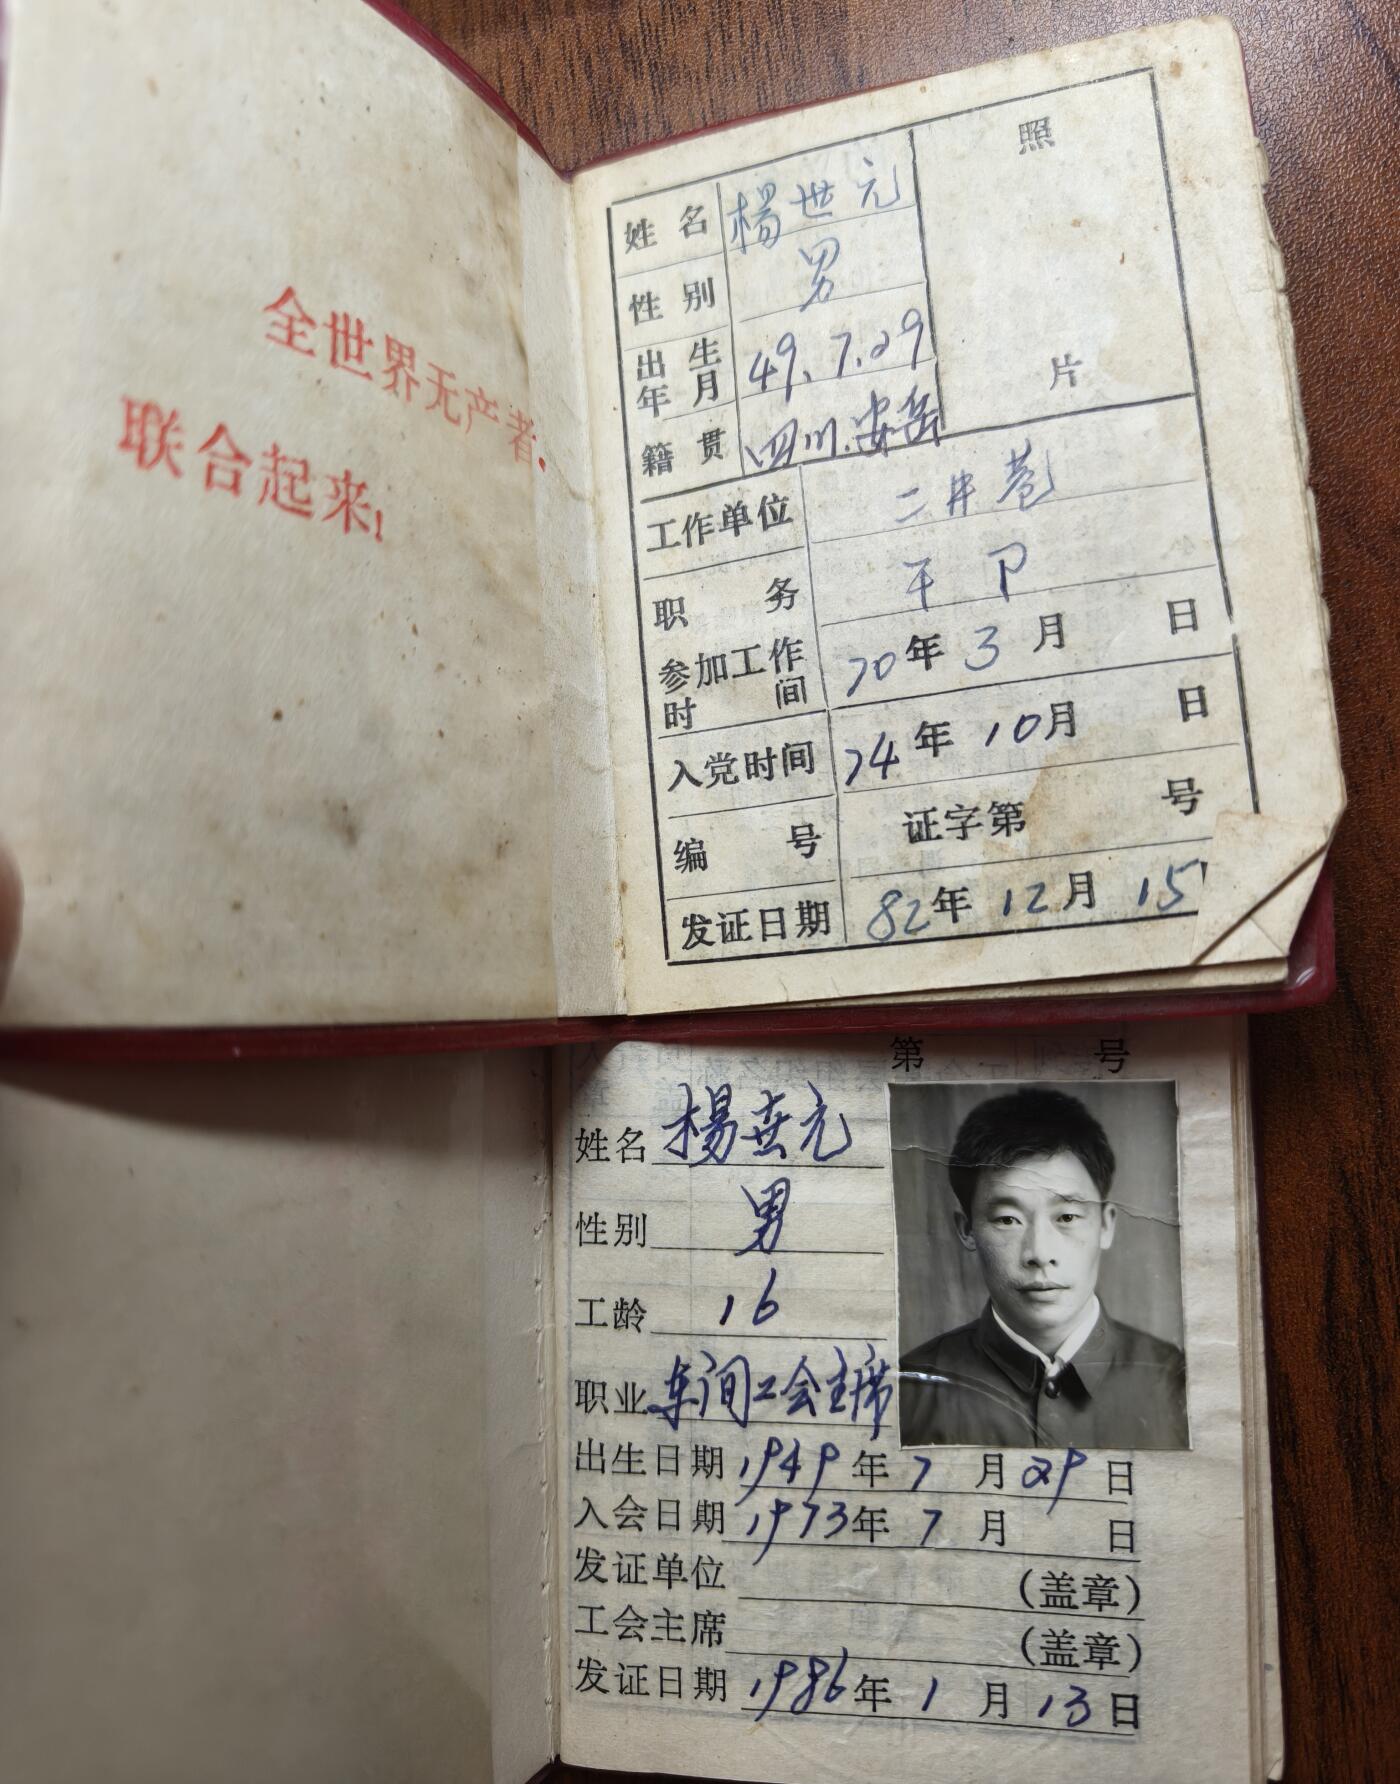 全世界无产者,
联合起来!
姓名 楊世元
性别 男
出生年月 49.7.29
籍贯 四川.安岳
照片
工作单位 二井巷
职务 干卩
参加工作时间 70年3月 日
入党时间 74年10月 日
编号 证字第 号
发证日期 82年12月15
第 号
姓名 楊世元
性别 男
工龄 16
职业 车间工会主席
出生日期 1949年7月29日
入会日期 1973年7月 日
发证单位 (盖章)
工会主席 (盖章)
发证日期 1986年1月13日